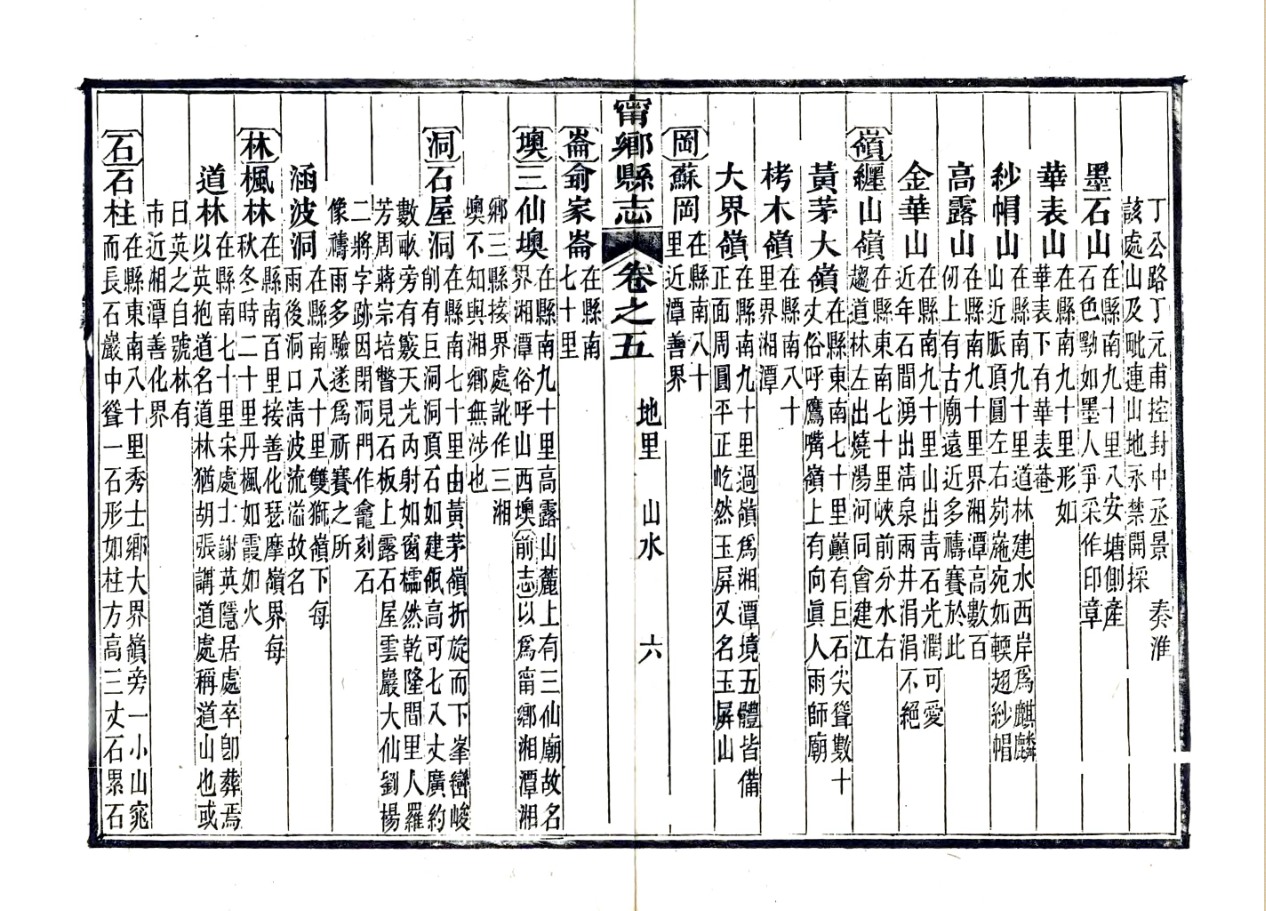 丁公路丁元甫控封中丞景　奏淮
該處山及毗連山地永禁開採
墨石山在縣南九十里八安塘側產
石色黝如墨人爭采作印章
華表山在縣南九十里形如
華表下有華表菴
紗帽山在縣南九十里道林建水西岸爲麒麟
山近脈頂圓左右峛崺宛如輭翅紗帽
高露山在縣東南九十里界湘潭高數百
仞上有古廟遠近多禱賽於此
金華山在縣南九十里山出靑石光潤可愛
近年石間湧出淸泉兩井涓涓不絕
嶺纒山嶺在縣東南七十里峽前分水右
趨道林左出燒湯河同會建江
黃茅大嶺在縣東南七十里巓有巨石尖聳數十
丈俗呼鷹嘴嶺上有向眞人雨師廟
栲木嶺在縣南八十
里界湘潭
大界嶺在縣南九十里過嶺爲湘潭境五體皆備
正面周圓平正屹然玉屏又名玉屏山
岡蘇岡在縣南八十
里近潭善界
甯鄉縣志　卷之五　地里　山水　六
崙俞家崙在縣南
七十里
㘭三仙㘭在縣南九十里高露山麓上有三仙廟故名
界湘潭俗呼山西㘭前志以爲甯鄉湘潭湘
鄉三縣接界處訛作三湘
㘭不知與湘鄉無涉也
洞石屋洞在縣南七十里由黃茅嶺折旋而下峯巒峻
削有巨洞洞頂石如建瓴高可七八丈廣約
數畝旁有竅天光丙射如窗櫺然乾隆間里人羅
芳周蔣宗培瞥見石板上露石屋雲巖大仙劉楊
二將字跡因閉洞門作龕刻石
像禱雨多驗遂爲祈賽之所
涵波洞在縣南八十里雙獅嶺下每
雨後洞口淸波流溢故名
林楓林在縣南百里接善化瑟摩嶺界每
秋冬時二十里丹楓如霞如火
道林在縣南七十里宋處士謝英隱居處卒卽葬焉
以英抱道名道林猶胡張講道處稱道山也或
曰英之自號林有
市近湘潭善化界
石石柱在縣東南八十里秀士鄉大界嶺旁一小山窕
而長石巖中聳一石形如柱方高三丈石累石